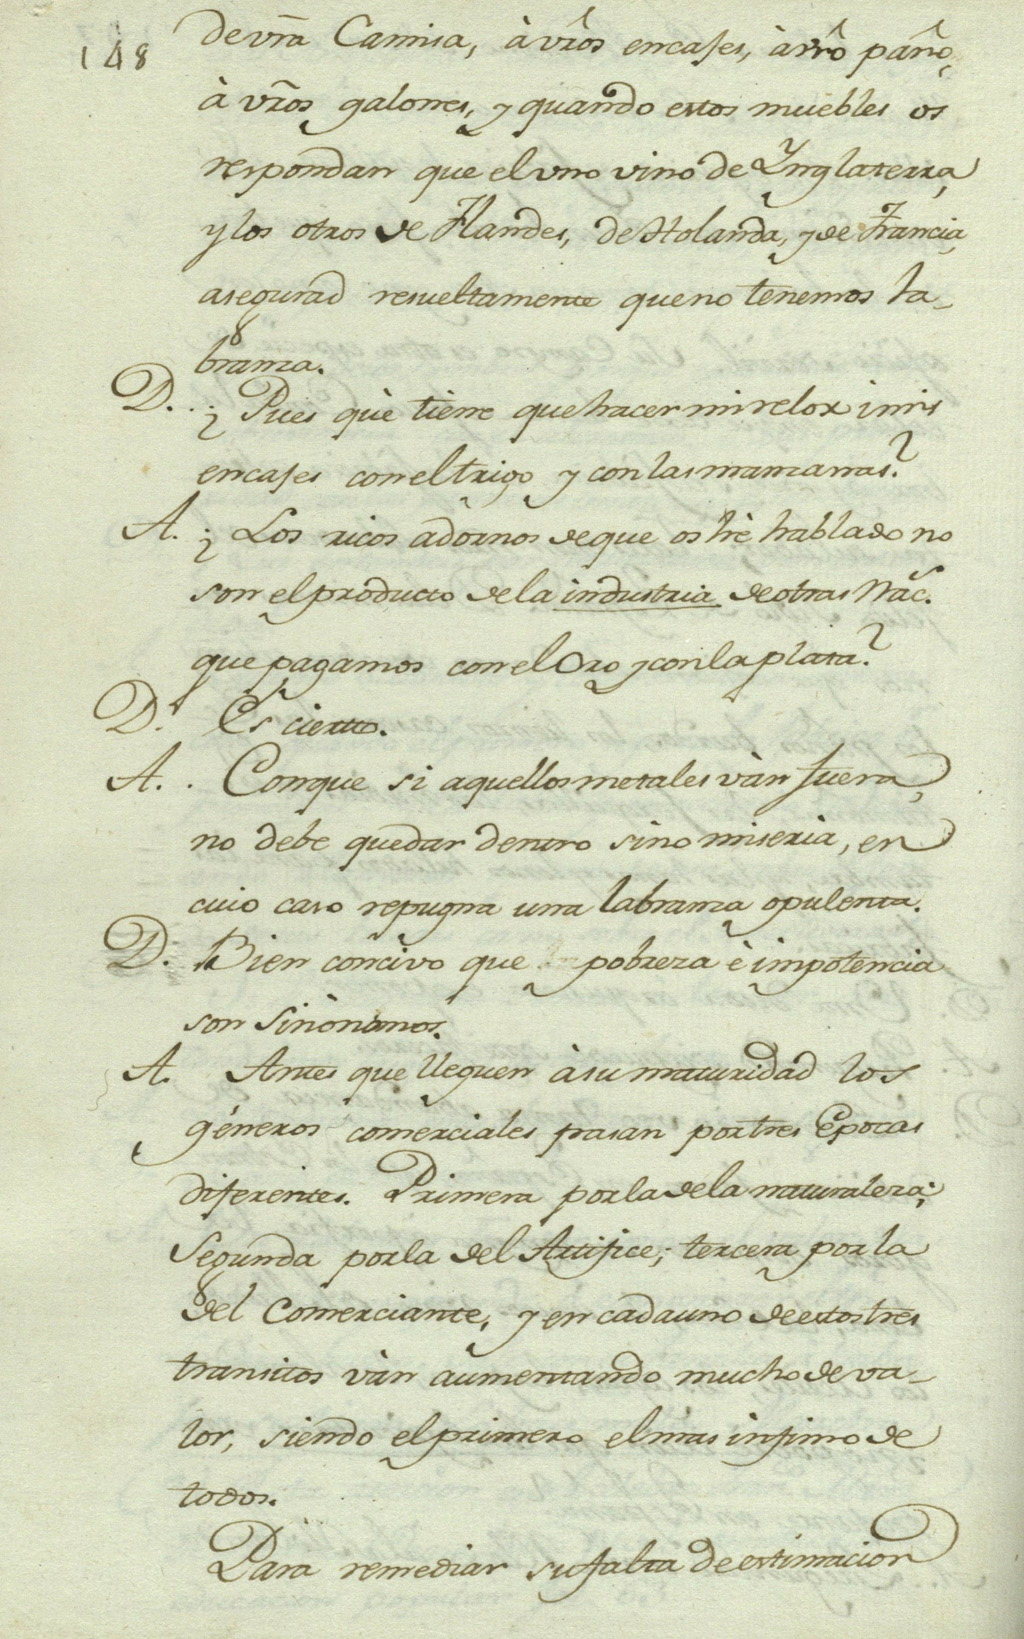 148
de vr̃a Camisa, à vr̃os encajes, à vr̃o paño,
à vr̃os galones, y quando estos muebles os
respondan que el uno vino de Ynglaterra,
y los otros de Flandes, de Holanda, y de Francia,
asegurad resueltamente que no tenemos la-
branza.
D. ¿ Pues què tiene que hacer mi relox i mis
encajes con el trigo y con las manzanas?
A. ¿ Los ricos adornos de que os hè hablado no
son el producto de la industria de otras Nac.
que pagamos con el Oro y con la plata?
D. Es cierto.
A. Conque si aquellos metales vàn fuera,
no debe quedar dentro sino miseria, en
cuio caso repugna una labranza opulenta.
D. Bien concivo que pobreza è impotencia
son sinònimos.
A. Antes que lleguen à su maturidad los
géneros comerciales pasan por tres Epocas
diferentes. Primera por la de la naturaleza;
Segunda por la del Artifice; tercera por la
del Comerciante, y en cada uno de estos tres
transitos vàn aumentando mucho de va-
lor, siendo el primero el mas infimo de
todos.
Para remediar su falta de estimacion